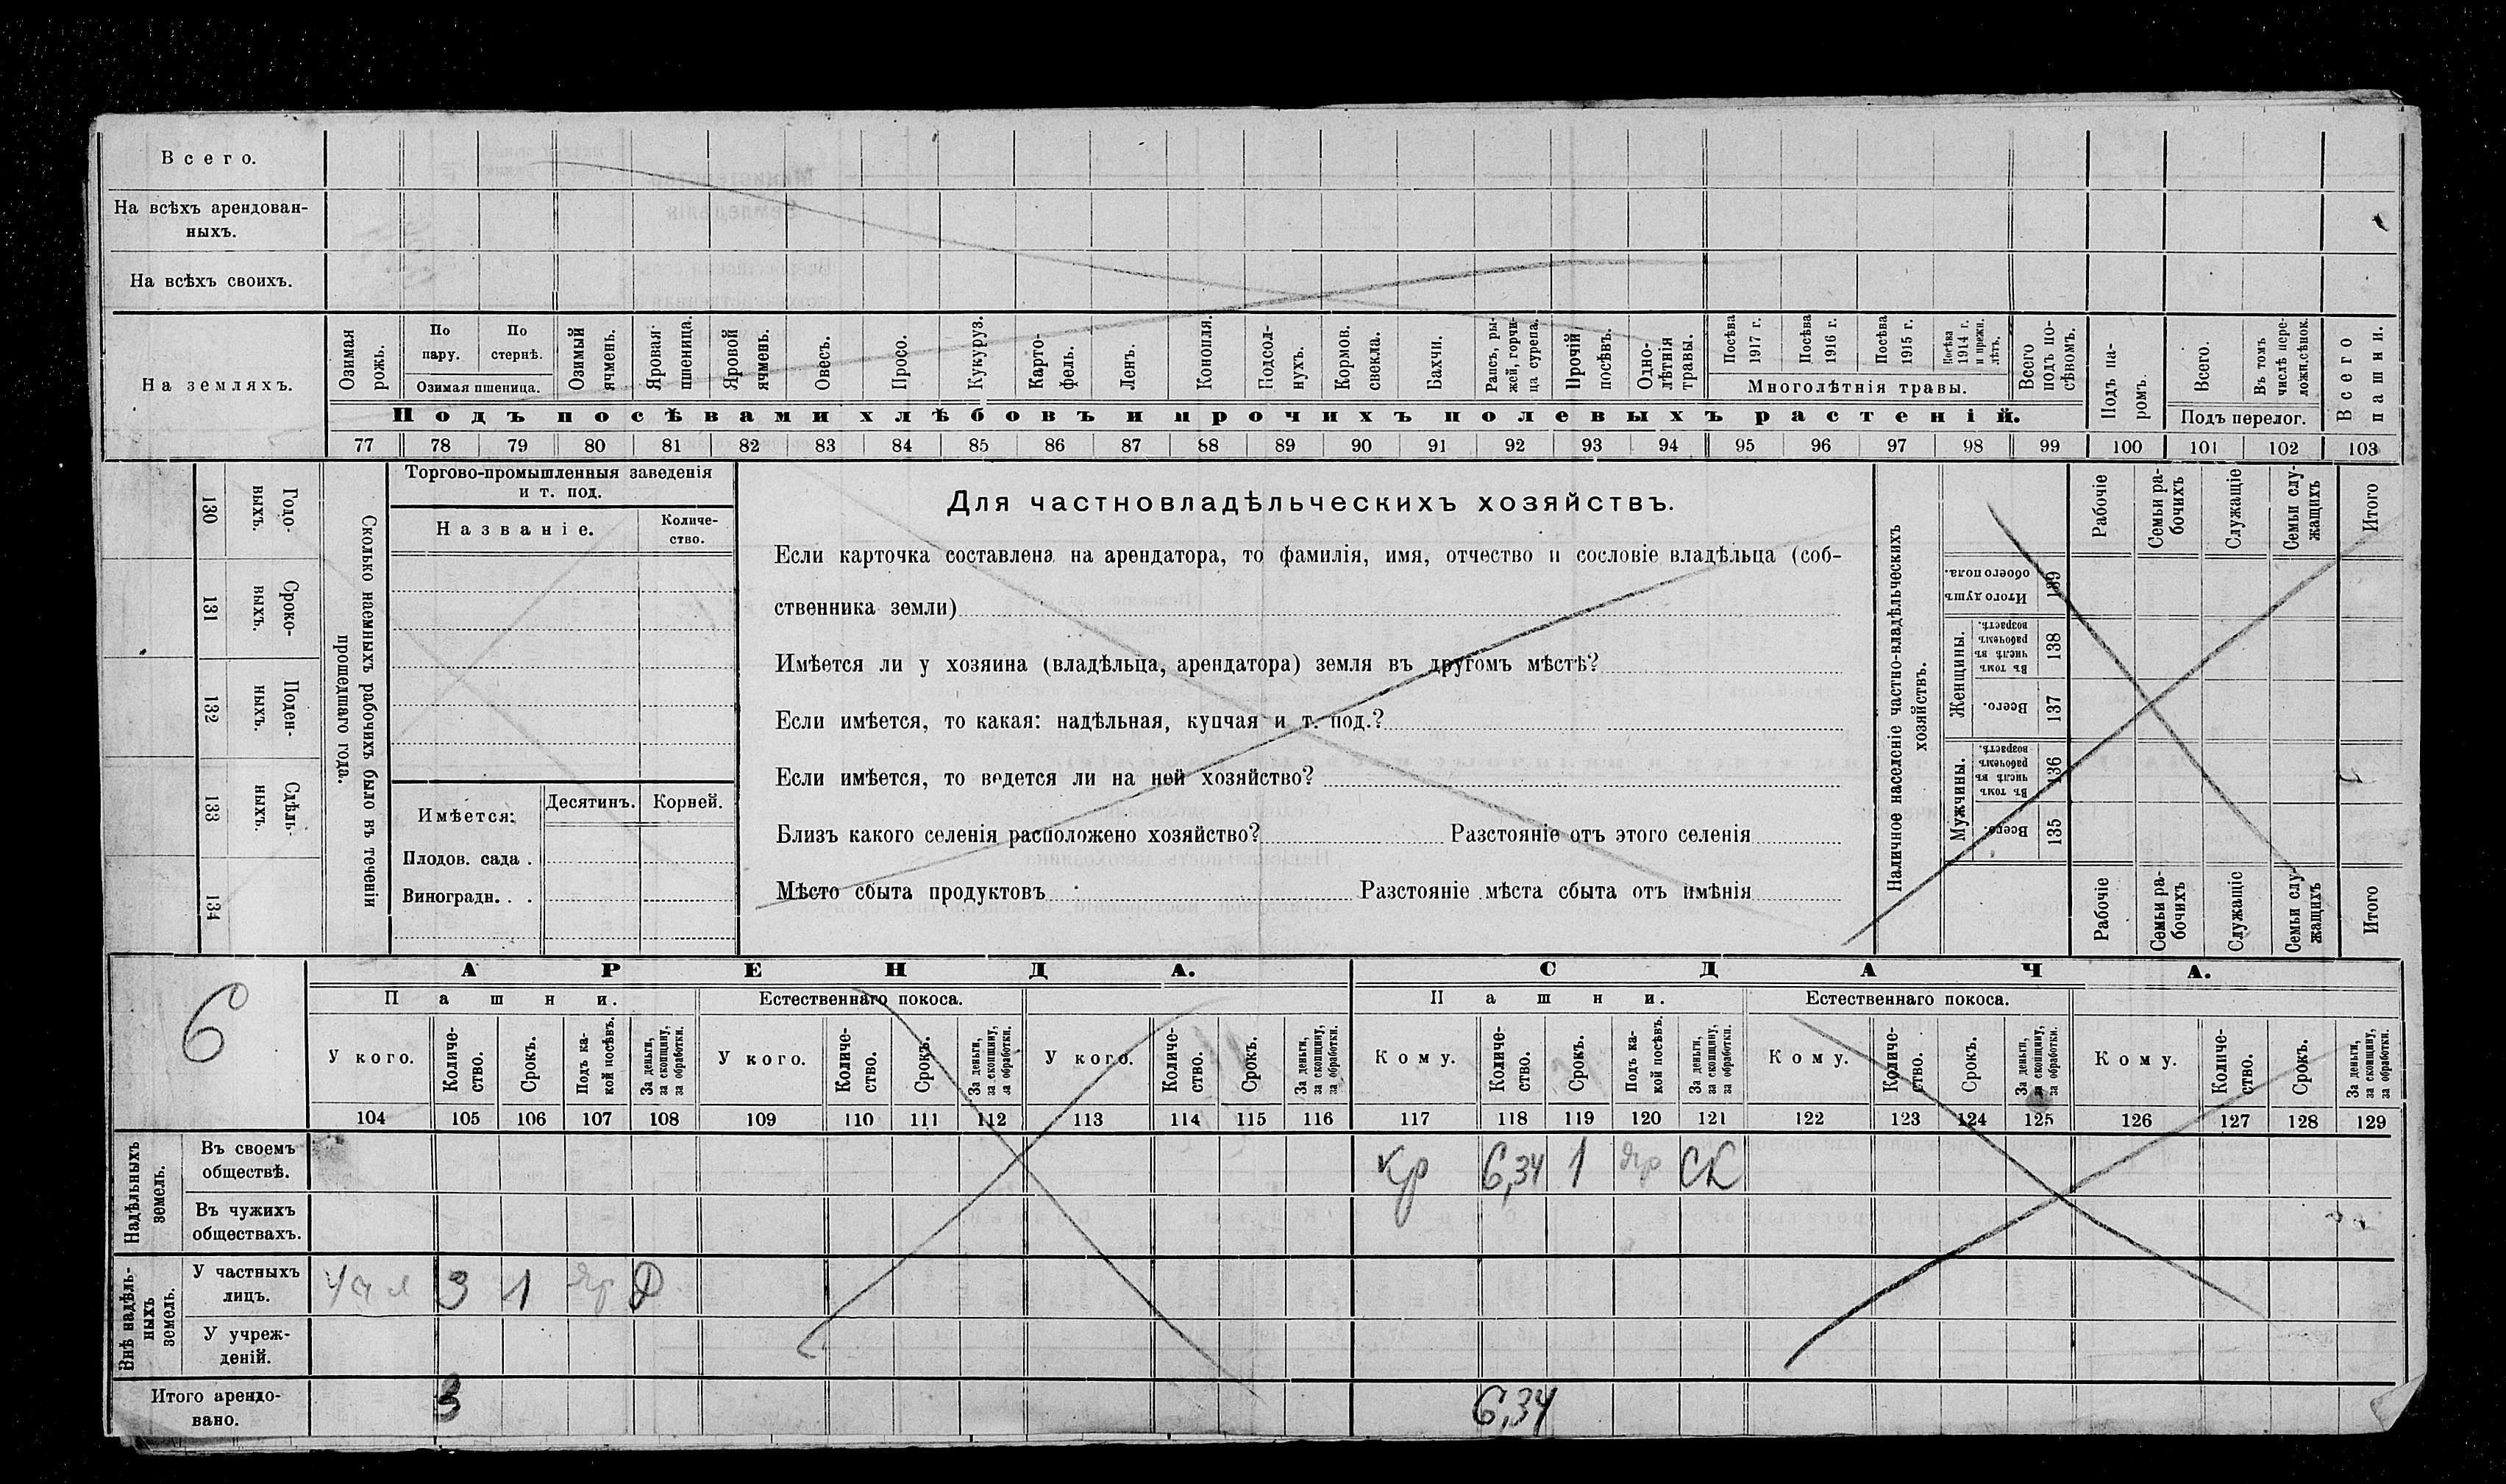 Всего.
На всѣхъ арендован-
ныхъ.
На всѣхъ своихъ.
На земляхъ.
Озимая рожь.
По пару.
По стернѣ.
Озимая пшеница.
Озимый ячмень.
Яровая пшеница.
Яровой ячмень.
Овесъ.
Просо.
Кукуруз.
Карто-
фель.
Ленъ.
Конопля.
Подсол-
нухъ.
Кормов. свекла.
Бахчи.
Рапсъ, ры-
жей, горчи-
ца сурепа.
Прочій посѣвъ.
Одно-
лѣтнія травы.
Посѣва 1917 г.
Посѣва 1916 г.
Посѣва 1915 г.
Посѣва 1914 г. и прежн. лѣтъ.
Многолѣтнія травы.
Всего подъ по-
сѣвомъ.
Подъ па-
ромъ.
Всего.
Въ томъ числѣ пере-
ложн.сѣнок.
Подъ перелог.
Всего пашни.
Подъ посѣвами хлѣбовъ и прочихъ полевыхъ растеній.
77 78 79 80 81 82 83 84 85 86 87 88 89 90 91 92 93 94 95 96 97 98 99 100 101 102 103
130 Годо-
выхъ.
131 Сроко-
выхъ.
132 Поден-
ныхъ.
133 Сдѣль-
ныхъ.
134
Сколько наемныхъ рабочихъ было въ теченіи
прошедшаго года.
Торгово-промышленныя заведенія
и т. под.
Названіе.
Количе-
ство.
Имѣется:
Десятинъ. Корней.
Плодов. сада .
Виноградн. . .
Для частновладѣльческихъ хозяйствъ.
Если карточка составлена на арендатора, то фамилія, имя, отчество и сословіе владѣльца (соб-
ственника земли)
Имѣется ли у хозяина (владѣльца, арендатора) земля въ другомъ мѣстѣ?
Если имѣется, то какая: надѣльная, купчая и т. под.?
Если имѣется, то ведется ли на ней хозяйство?
Близъ какого селенія расположено хозяйство? Разстояніе отъ этого селенія
Мѣсто сбыта продуктовъ Разстояніе мѣста сбыта отъ имѣнія
Наличное населеніе частно-владѣльческихъ
хозяйствъ.
Рабочіе
Семьи ра-
бочихъ
Служащіе
Семьи слу-
жащихъ
Итого
Итого душъ обоего пола. 139
Женщины.
Въ томъ числѣ въ рабочемъ возрастѣ. 138
Всего. 137
Мужчины.
Въ томъ числѣ въ рабочемъ возрастѣ. 136
Всего. 135
Рабочіе
Семьи ра-
бочихъ
Служащіе
Семьи слу-
жащихъ
Итого
6
АРЕНДА. СДАЧА.
Пашни. Естественнаго покоса. Пашни. Естественнаго покоса.
У кого.
Количе-
ство.
Срокъ.
Подъ ка-
кой посѣвъ.
За деньги,
за скопщину,
за обработки.
У кого.
Количе-
ство.
Срокъ.
За деньги,
за скопщину,
за обработки.
У кого.
Количе-
ство.
Срокъ.
За деньги,
за скопщину,
за обработки.
Кому.
Количе-
ство.
Срокъ.
Подъ ка-
кой посѣвъ.
За деньги,
за скопщину,
за обработки.
Кому.
Количе-
ство.
Срокъ.
За деньги,
за скопщину,
за обработки.
Кому.
Количе-
ство.
Срокъ.
За деньги,
за скопщину,
за обработки.
104 105 106 107 108 109 110 111 112 113 114 115 116 117 118 119 120 121 122 123 124 125 126 127 128 129
Надѣльныхъ
земель.
Въ своемъ
обществѣ.
кр 6,34 1 яр СК
Въ чужихъ
обществахъ.
Внѣ надѣль-
ныхъ
земель.
У частныхъ
лицъ.
3 1 яр Д
У учреж-
деній.
Итого арендо-
вано.
3 6,34